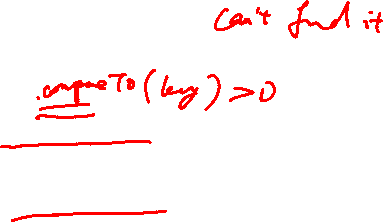 can't find it
.compareTo(key) > 0